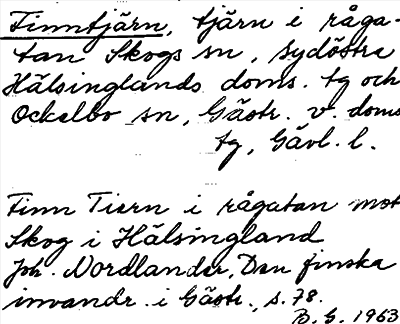 Finntjärn, tjärn i råga-
tan Skogs sn, sydöstra
Hälsinglands doms. tg och
Ockelbo sn, Gästr. v. doms
tg, Gävl. l.
Finn Tiern i rågatan mot
Skog i Hälsingland
Joh. Nordlander, Den finska
invandr. i Gästr., s. 78.
B. G. 1963